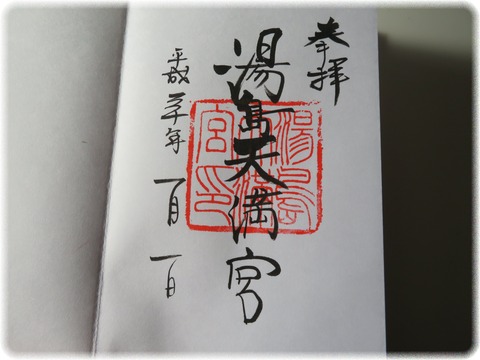 奉拝
湯島天満宮
平成年一月一日
湯島
天満
宮印